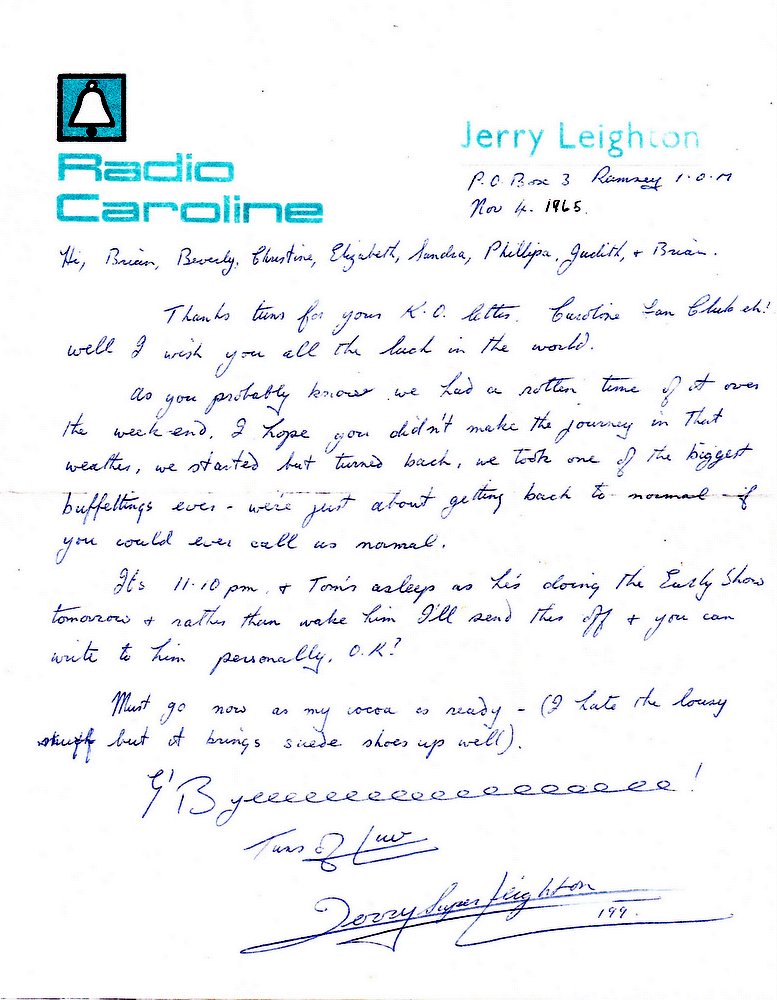 Radio
Caroline
Jerry Leighton
P.O. Box 3 Ramsey I.O.M
Nov 4. 1965.
Hi, Brian, Beverly, Christine, Elizabeth, Sandra, Phillipa, Judith, + Brian.
Thanks tuns for your K.O. letter. Caroline Fan Club eh!
well I wish you all the luck in the world.
As you probably know we had a rotten time of it over
the week-end. I hope you didn't make the journey in that
weather, we started but turned back, we took one of the biggest
buffettings ever - we're just about getting back to normal - if
you could ever call us normal.
Its 11.10 pm. + Tom's asleep as he's doing the Early Show
tomorrow + rather than wake him I'll send this off + you can
write to him personally. O.K?
Must go now as my cocoa is ready - (I hate the lousy
stuff but it brings suede shoes up well).
G'Byeeeeeeeeeeeeeeeeeee!
Tuns of Luv
Jerry Super Leighton
199.